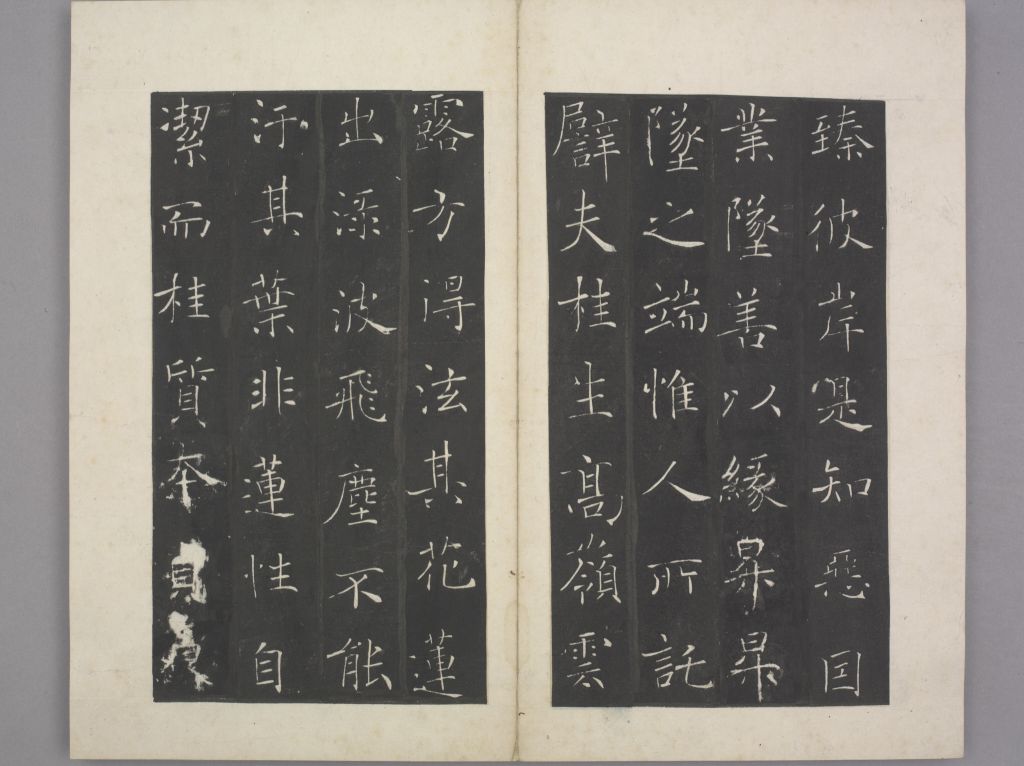 臻彼岸是知惡因
業墜善以緣昇昇
墜之端惟人所託
譬夫桂生高嶺雲
露方得泫其花蓮
出淥波飛塵不能
汙其葉非蓮性自
潔而桂質本貞良